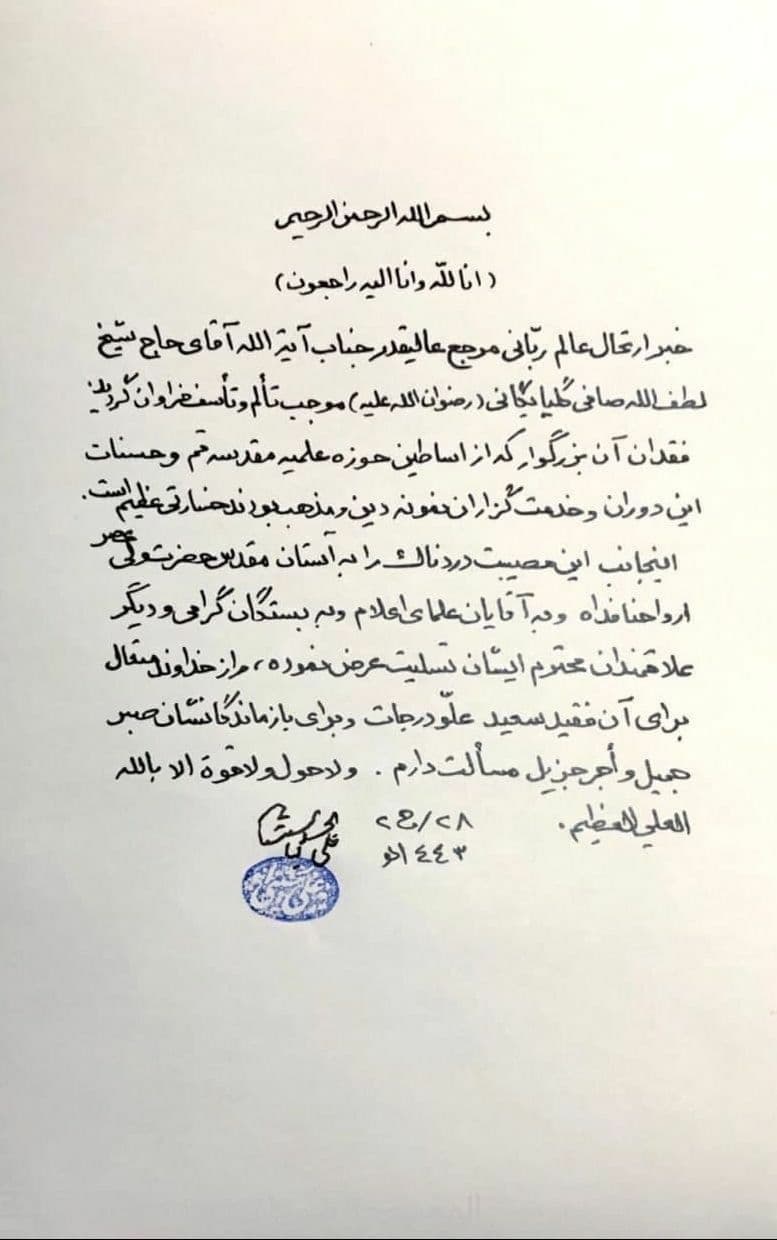 بسم الله الرحمن الرحیم
(انا لله وانا الیه راجعون)
خبر ارتحال عالم ربّانی مرجع عالیقدر جناب آیة الله آقای حاج شیخ
لطف الله صافی گلپایگانی (رضوان الله علیه) موجب تألم وتأسف فراوان گردید.
فقدان آن بزرگوار که از اساطین حوزه علمیه مقدسه قم وحسنات
این دوران وخدمت گزاران نمونه دین ومذهب بودند خسارتی عظیم است.
اینجانب این مصیبت دردناک را به آستان مقدس حضرت ولی عصر
ارواحنا فداه وبه آقایان علمای اعلام وبه بستگان گرامی ودیگر
علاقمندان محترم ایشان تسلیت عرض نموده، واز خداوند متعال
برای آن فقید سعید علوّ درجات وبرای بازماندگانشان صبر
جمیل وأجر جزیل مسألت دارم. ولا حول ولا قوة الا بالله
العلي العظیم. ٢٨/ج٢
١٤٤٣هـ علی الحسینی السیستانی